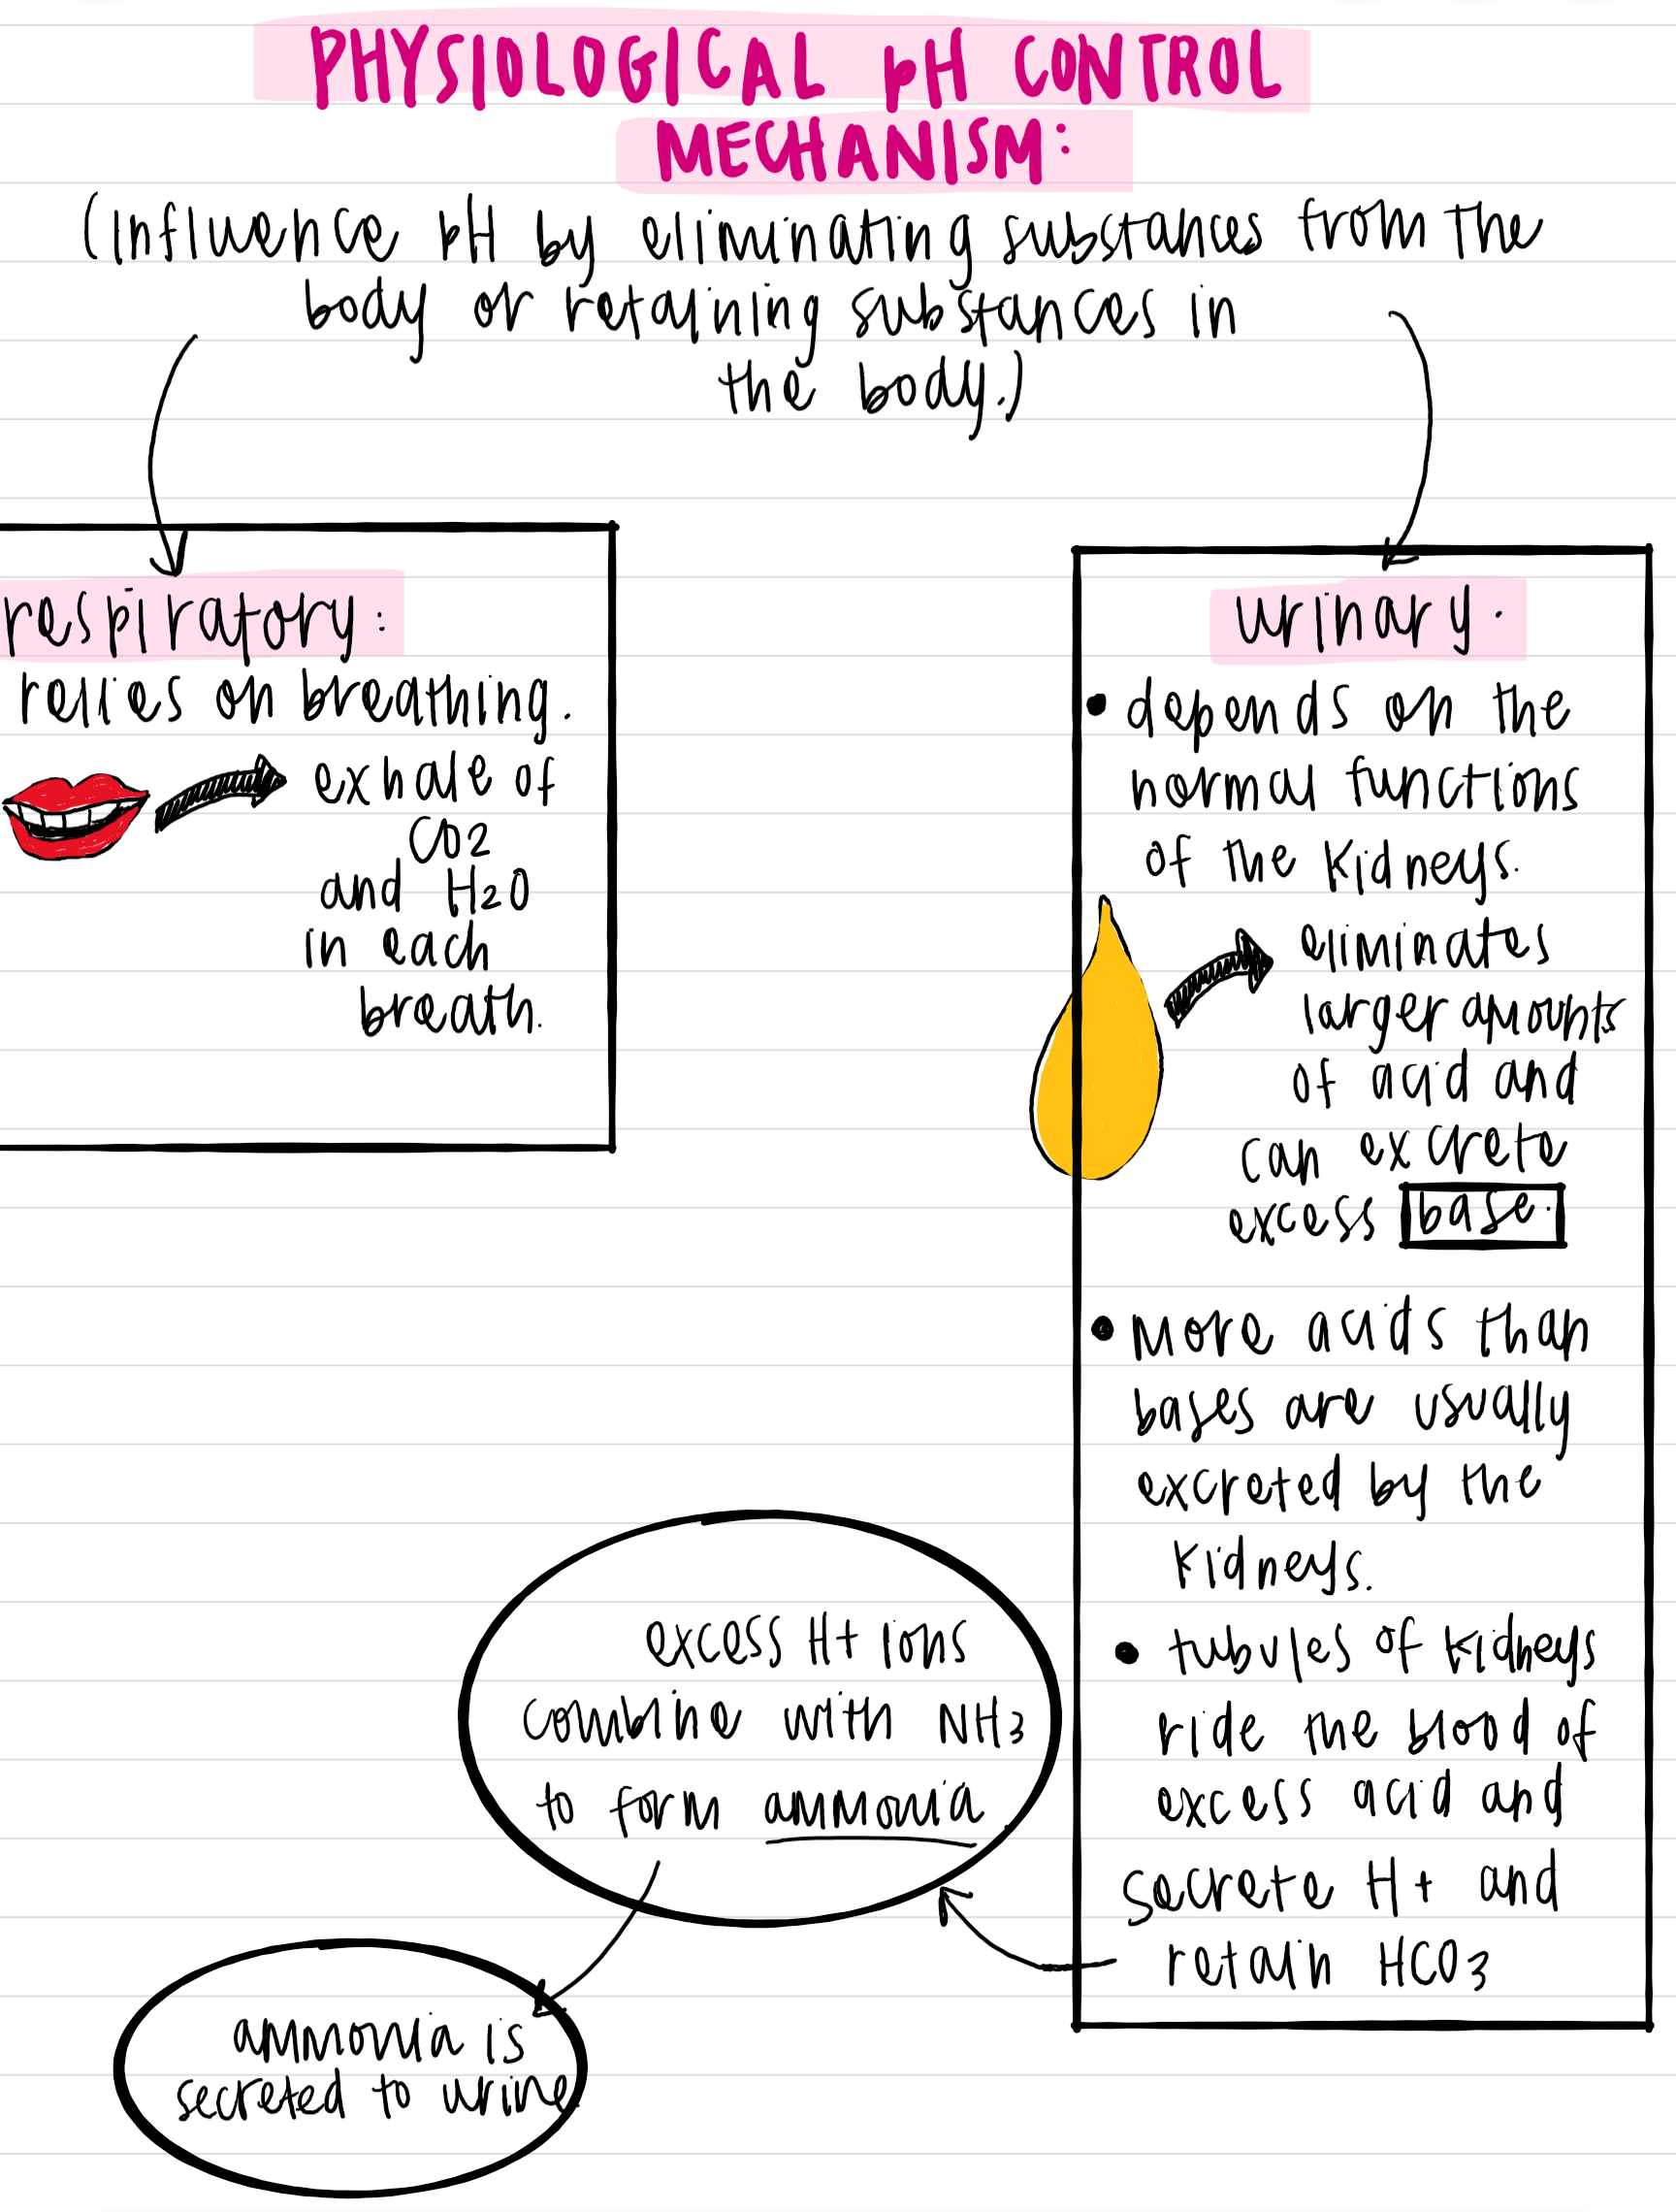 PHYSIOLOGICAL pH CONTROL
MECHANISM:
(Influence pH by eliminating substances from the
body or retaining substances in
the body.)
respiratory:
relies on breathing.
exhale of
CO2
and H2O
in each
breath.
urinary.
• depends on the
normal functions
of the kidneys.
eliminates
larger amounts
of acid and
can excrete
excess base.
• more acids than
bases are usually
excreted by the
kidneys.
• tubules of kidneys
ride the blood of
excess acid and
secrete H+ and
retain HCO3
excess H+ ions
combine with NH3
to form ammonia
ammonia is
secreted to urine